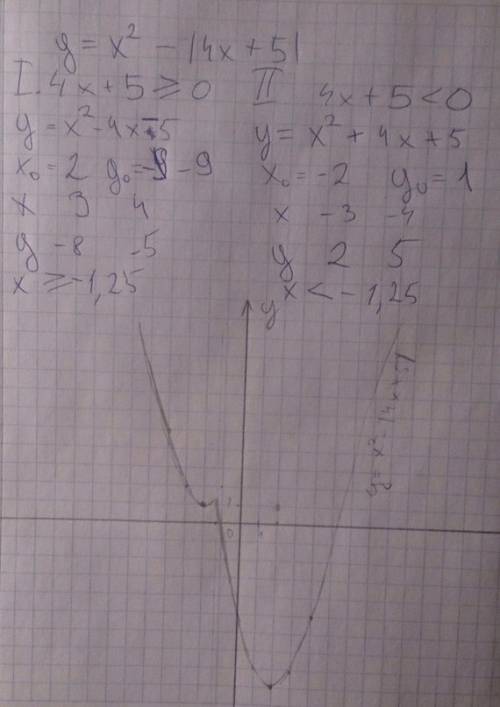 y = x² - |4x + 5|
I. 4x + 5 ≥ 0
y = x² - 4x - 5
x₀ = 2 y₀ = -9
x 3 4
y -8 -5
x ≥ -1,25
II 4x + 5 < 0
y = x² + 4x + 5
x₀ = -2 y₀ = 1
x -3 -4
y 2 5
x < -1,25
y
y = x² - |4x + 5|
1
0 1